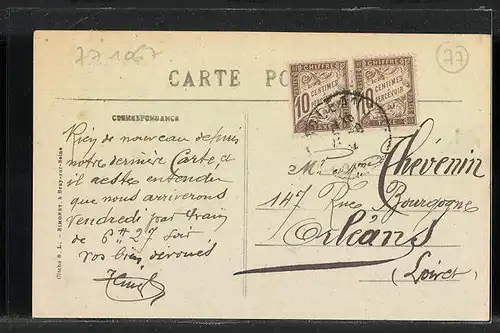 77.1067
77
CARTE PO
CORRESPONDANCE
CHIFFRE
10 CENTIMES À PERCEVOIR
CHIFFRE
10 CENTIMES À PERCEVOIR
Rien de nouveau depuis
notre dernière Carte et
il a été entendu
que nous arriverons
vendredi par train
de 6h 27 soir
vos bien dévoués
Mr et Mme Thévenin
147 Rue Bourgogne
Orléans
(Loiret)
Cliché S. L. - SIMONET, à Bray-sur-Seine